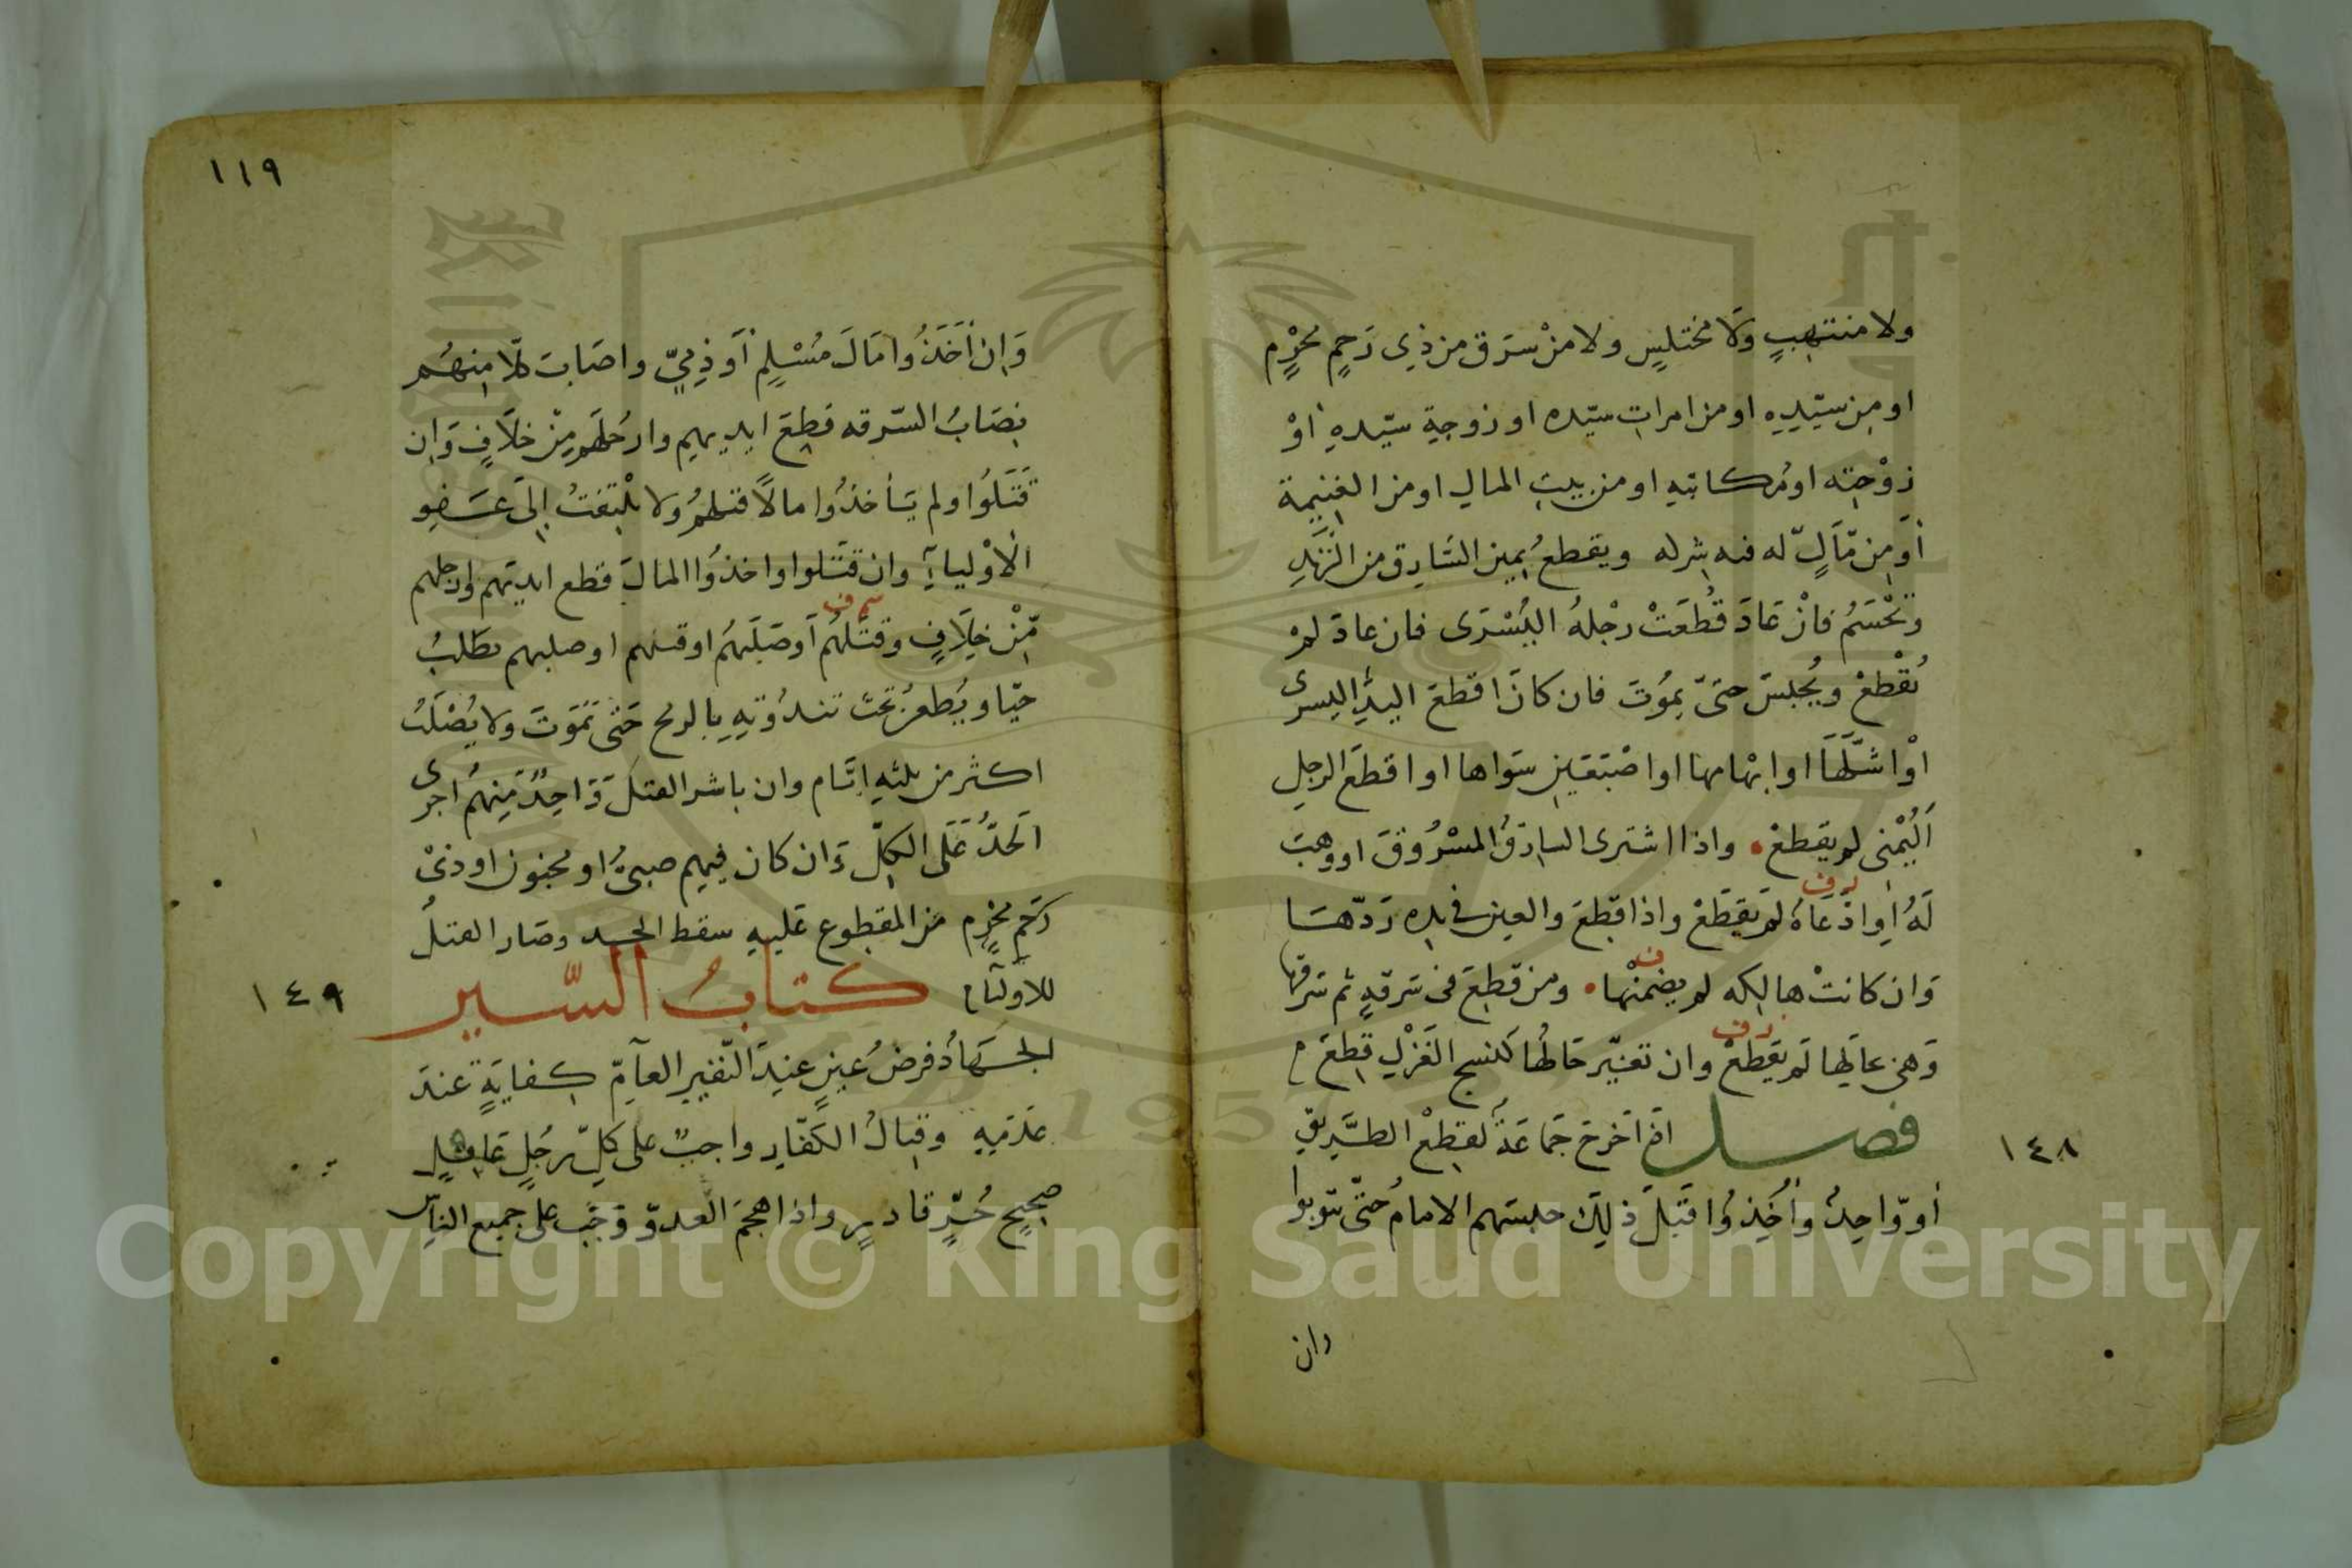 ولا منتهبٍ ولا مختلسٍ ولا من سرق من ذي رحمٍ محرمٍ
او من سيّده او من امرات سيّده او زوجة سيّدهِ اوْ
زوْجته او مكاتبهِ او من بيت المال او من الغنيمة
أو من مّالٍ له فيه شركه ويقطعُ يمين السّارق من الزند
وتحْسَمُ فانْ عَادَ قُطعَتْ رجْلهُ اليُسْرَى فان عادَ لم
يُقْطعْ ويُحبسَ حتىّ يموُتَ فان كانَ اقطعَ اليدِ اليسرى
اوْ اشلَّهَا او ابهامها او اصْبَعَينِ سَواها او اقطعَ الرجلِ
اَليُمْنى لم يقطعْ واذا اشترى السارقُ المسْرُوقَ او وهبَ
لَهُ أوِ ادّعَاهُ لم يقطعْ واذا قطعَ والعين في يده رَدّهَا
وَان كانتْ هالكه لم يضمنْها ومن قطعَ فى سَرقهٍ ثم سَرقها
وَهى بحالِها لم يقطعْ وان تغيّر حَالُها كنسج الغَزْلِ قطعَ
فصل اذا خرجَ جَماعَةٌ لقطعْ الطَّرِيقِ
أو وّاحدٌ وأُخِذوُا قَبْلَ ذلِكَ حبسَهم الامامُ حتّى يتوبوا
وان
١٤٨
١١٩
وَإن أَخَذُوا مَالَ مُسْلمٍ أَو ذِمّيٍّ واصَابَ كلّا منهُم
نِصَابُ السّرقه قطعَ ايديهم وارْجُلَهم منْ خلَافٍ وَان
قَتَلوُا ولم يَأخذُوا مالاً قتلهُم ولا يلْتفتُ الىَ عَفو
الْأوْلياءِ وان قتلوا واخذُوا المالَ قطع ايديهم وارجلهم
مّنْ خِلَافٍ وقتلَهُم أوصَلَبَهُم او قتلهم او صلبهم يصلبُ
حيّا ويُطعنُ تحتَ تندُوَتِهِ بالرمح حَتى تمَوتَ ولا يُصْلَبُ
اكثر من ثلثهِ ايّام وان باشر القتلَ وَاحِدٌ مّنهُم اجرى
الحَدُّ عَلَى الكلِّ وَان كان فيهم صبىٌّ او مجنون او ذىْ
رَحَمٍ محْرَمٍ من المقطوع عَليهِ سقط الحد وصَار القتلُ
للاوليَاء كتابُ السّير
١٤٩
الجهَادُ فرضُ عينٍ عنِدَ النّفير العآمّ كفايَةٍ عندَ
عَدَمِهِ وقتالُ الكفّارِ واجبٌ على كلِّ رجُلٍ عَاقلٍ
صحِيحٍ حُرٍّ قادرٍ واذا هجمَ العدوّ وَجَبَ على جميع الناسِ
Copyright © King Saud University
1957